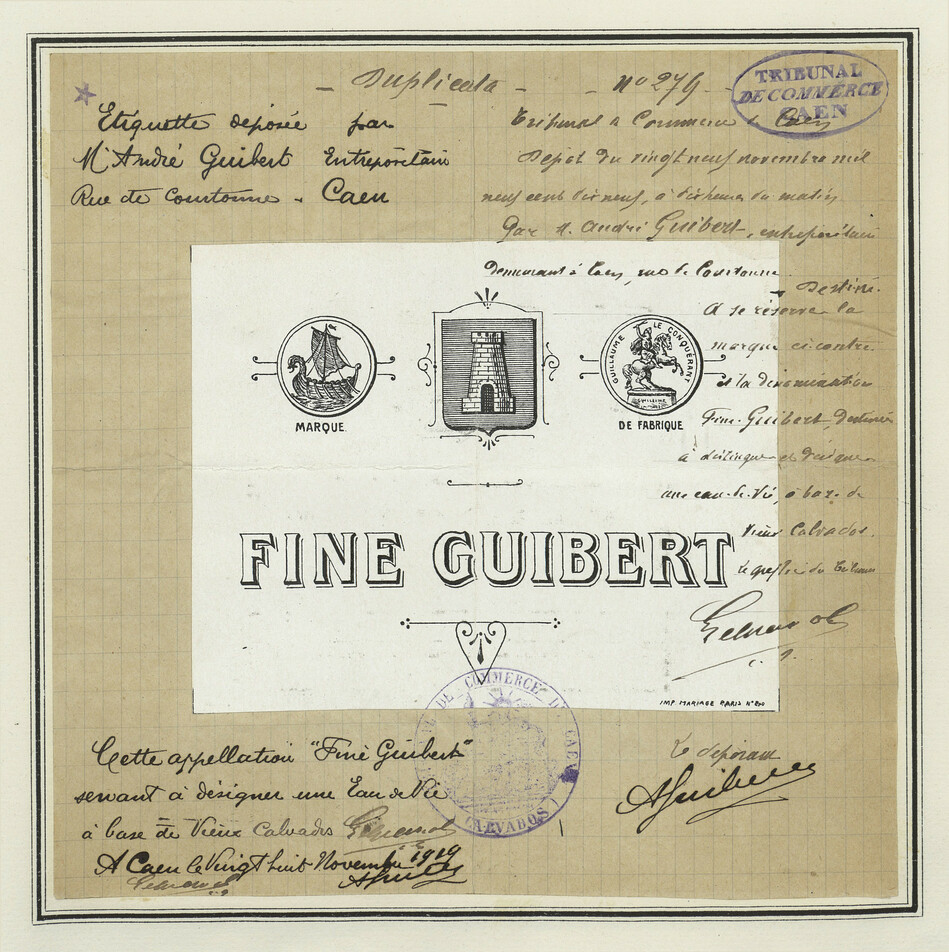 Duplicata
nº 279
TRIBUNAL
DE COMMERCE
CAEN
Etiquette déposée par
Mr André Guibert Entrepositaire
Rue de Courtonne. Caen
Tribunal de Commerce de Caen
Dépôt du vingt neuf novembre mil
neuf cent dix neuf, à dix heures du matin
Par M. André Guibert, entrepositaire
Demeurant à Caen, rue de Courtonne
Destiné
à se réserver la
marque ci contre
et la dénomination
Fine Guibert, destinée
à distinguer et désigner
une eau-de-vie, à base de
Vieux Calvados.
Le greffier du Tribunal
GUILLAUME LE CONQUÉRANT
MARQUE
DE FABRIQUE
FINE GUIBERT
IMP. MARIAGE PARIS
DE COMMERCE DE CAEN
(CALVADOS)
Cette appellation "Fine Guibert"
servant à désigner une Eau de Vie
à base de Vieux Calvados
A Caen le Vingt huit Novembre 1919
Le déposant
AGuibert